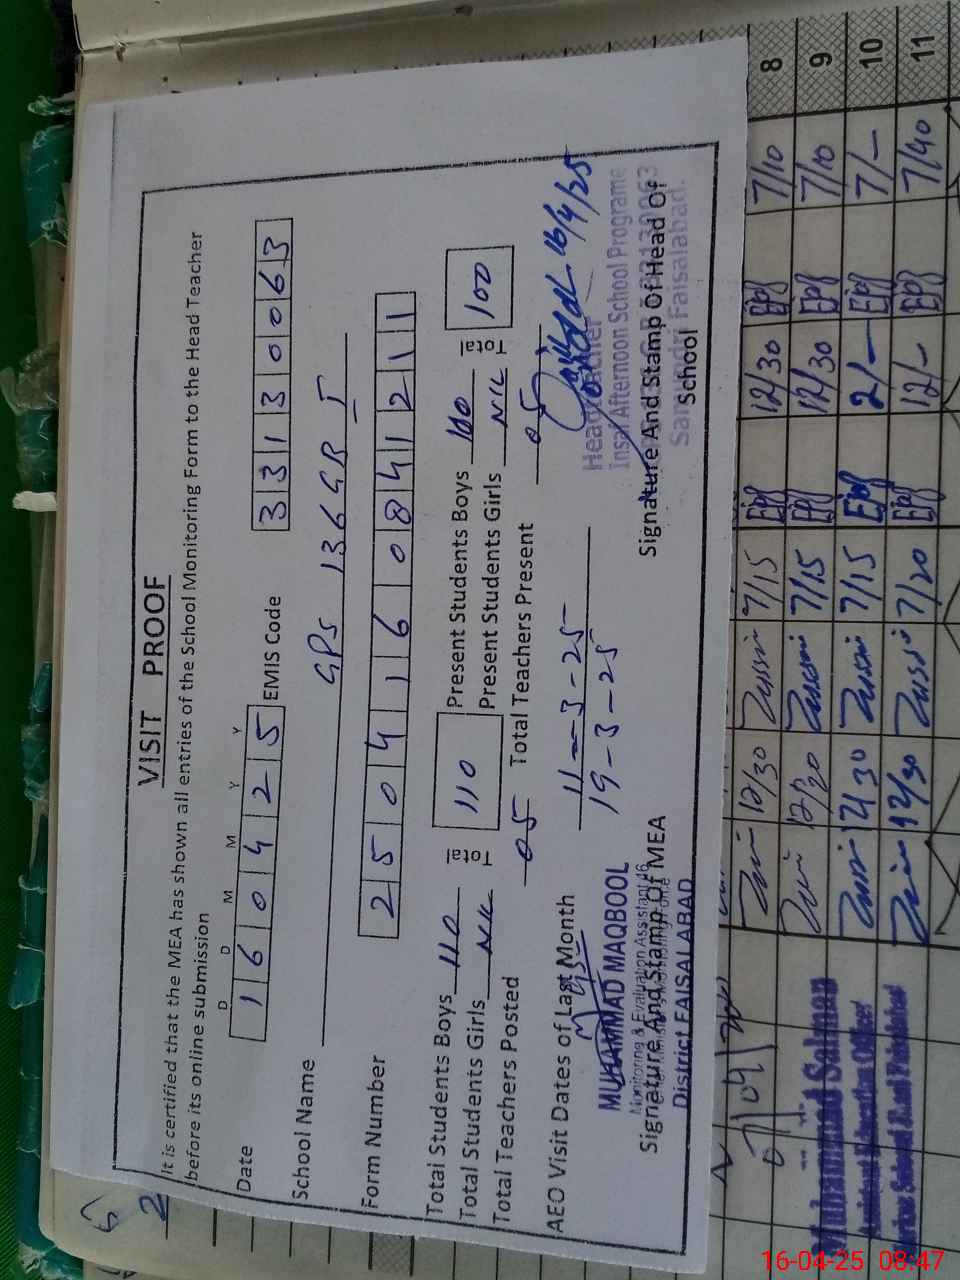 VISIT PROOF
It is certified that the MEA has shown all entries of the School Monitoring Form to the Head Teacher
before its online submission
D D M M Y Y
Date 1 6 0 4 2 5 EMIS Code 3 3 1 3 0 0 6 3
School Name GPS 136 GB I
Form Number 2 5 0 4 1 6 0 8 4 1 2 1 1
Total Students Boys 110 Total 110 Present Students Boys 100 Total 100
Total Students Girls NIL Present Students Girls NIL
Total Teachers Posted 05 Total Teachers Present 05
AEO Visit Dates of Last Month 11-3-25
19-3-25
16/4/25
MUHAMMAD MAQBOOL
Monitoring & Evaluation Assistant
Signature And Stamp Of MEA
District FAISALABAD
Headteacher
Insaf Afternoon School Programe
Signature And Stamp Of Head Of
School
Samundri Faisalabad.
12/30 7/15 12/30 7/10 8
12/30 7/15 12/30 7/10 9
12/30 7/15 12/- 7/- 10
12/30 7/20 12/- 7/40 11
Muhammad Salman
Assistant Education Officer
16-04-25 08:47